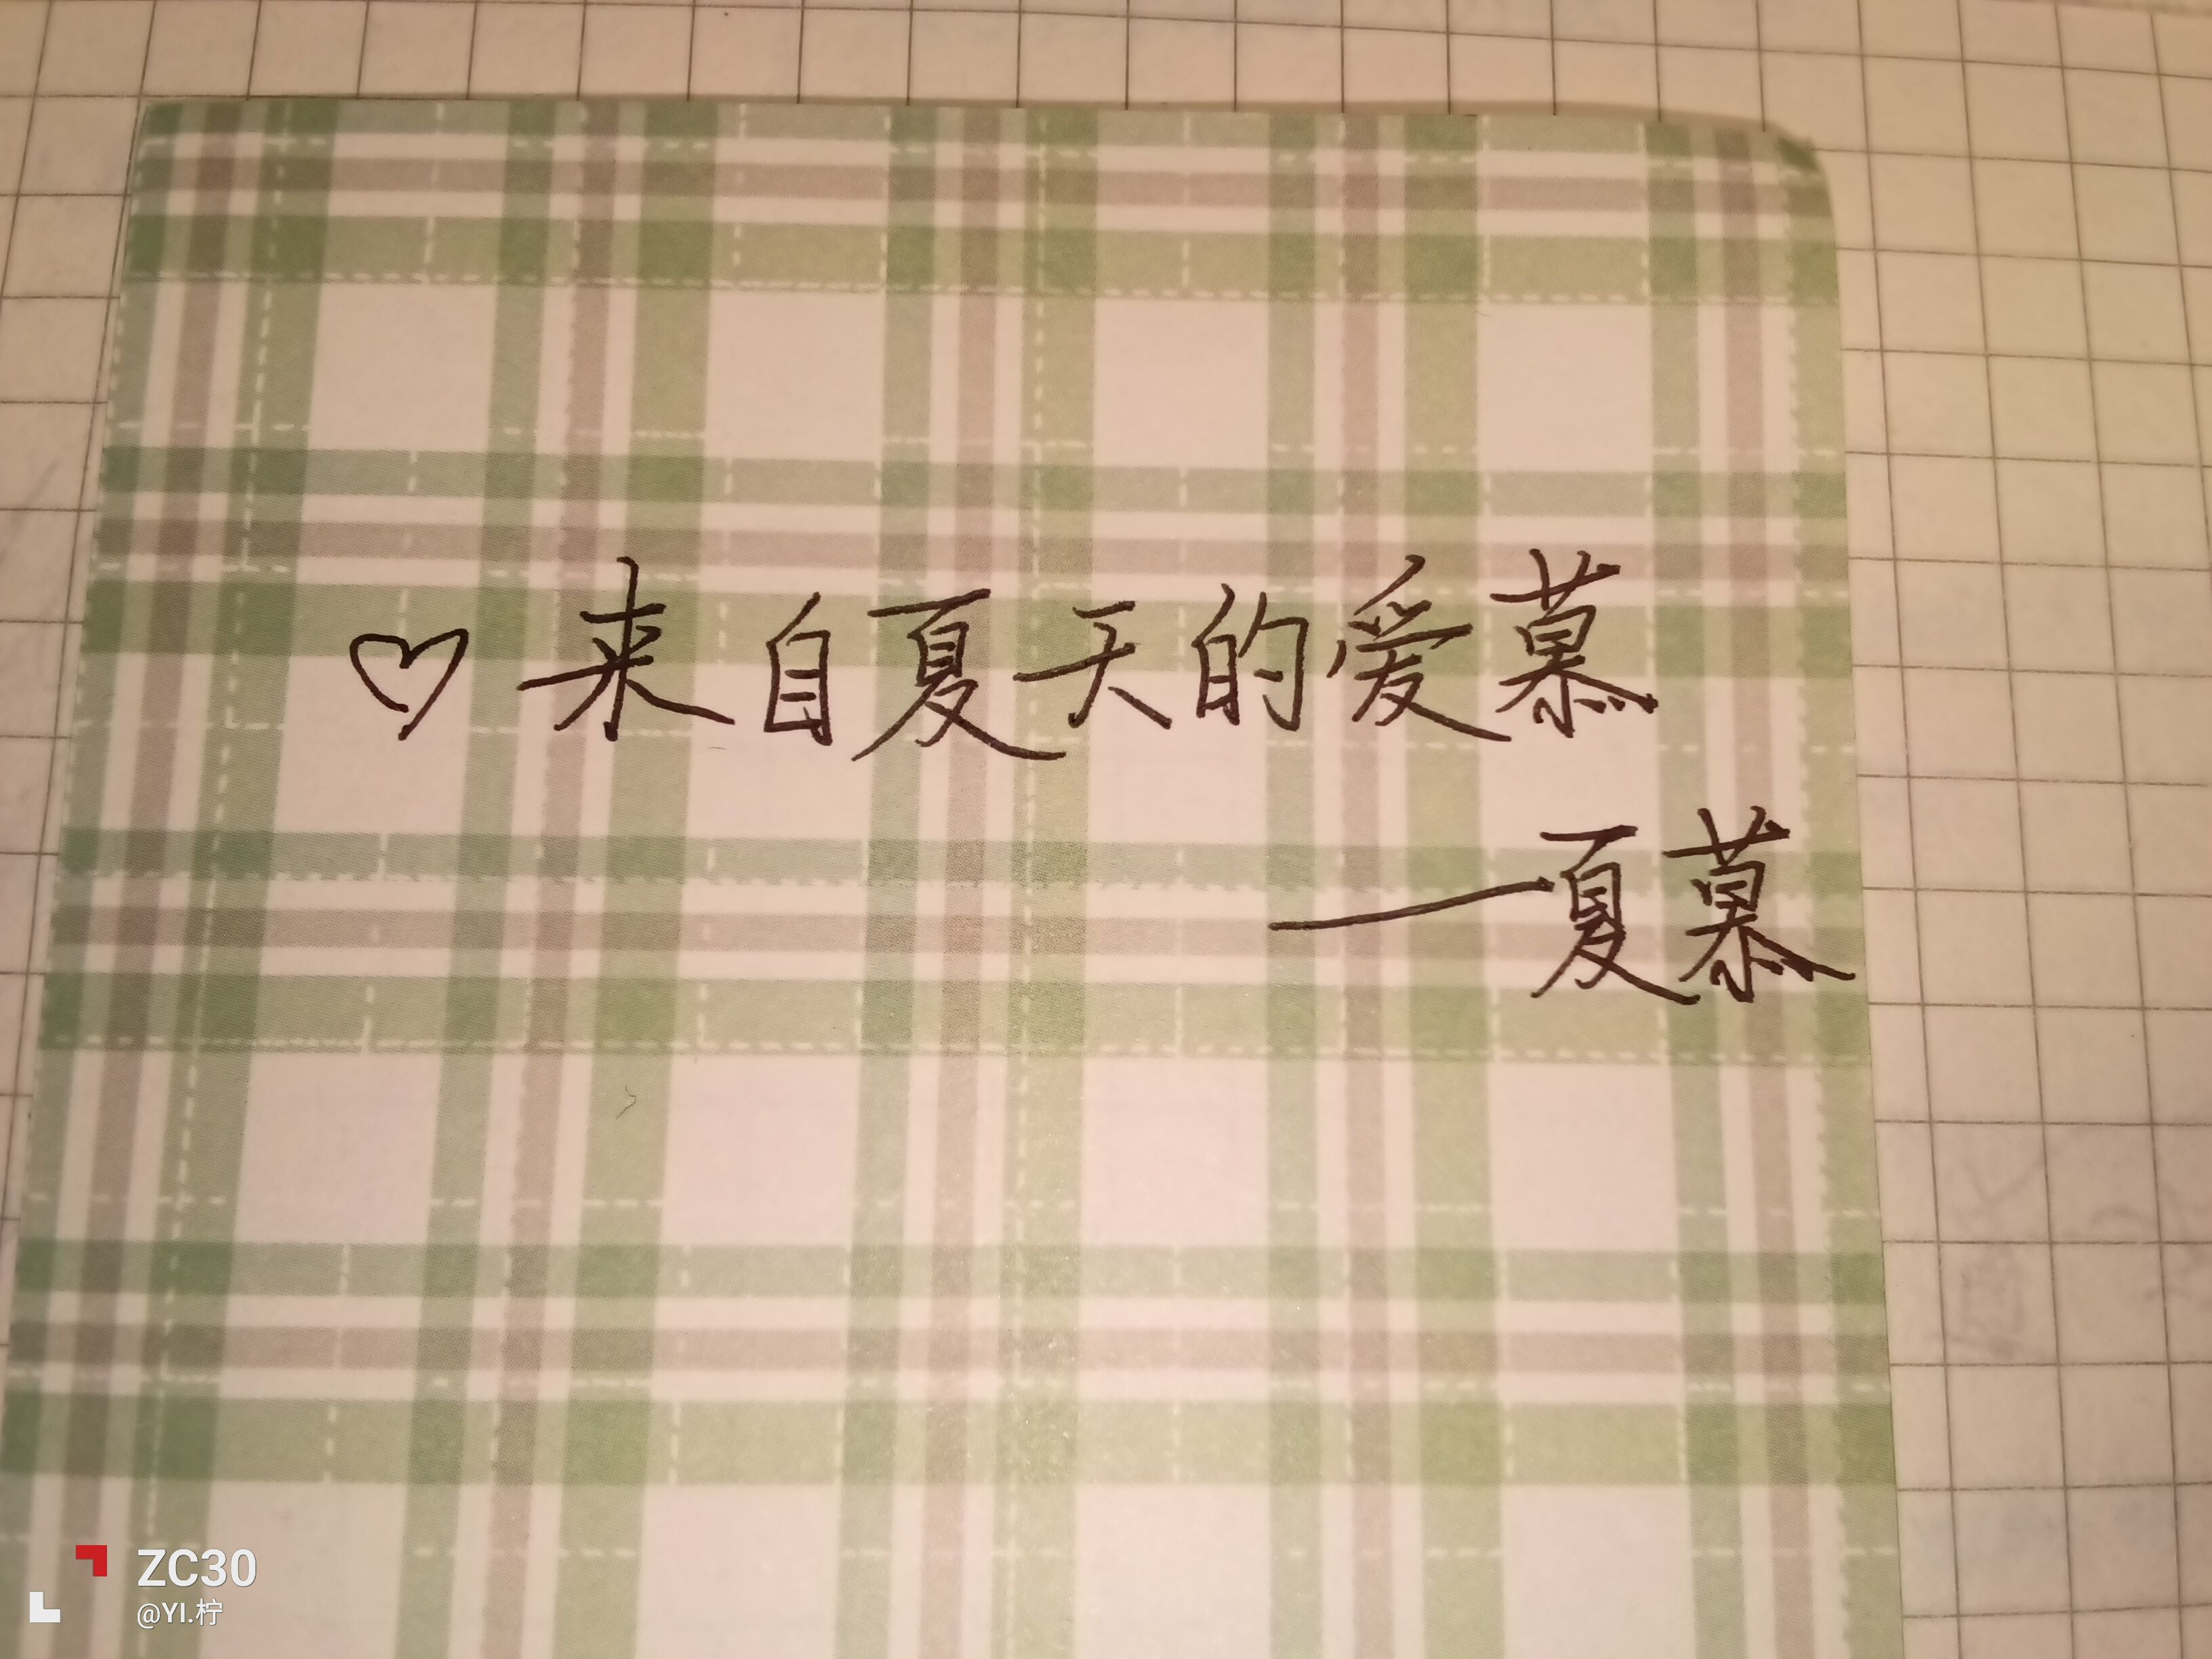 ♡ 来自夏天的爱慕
——夏慕
ZC30
@YI.柠